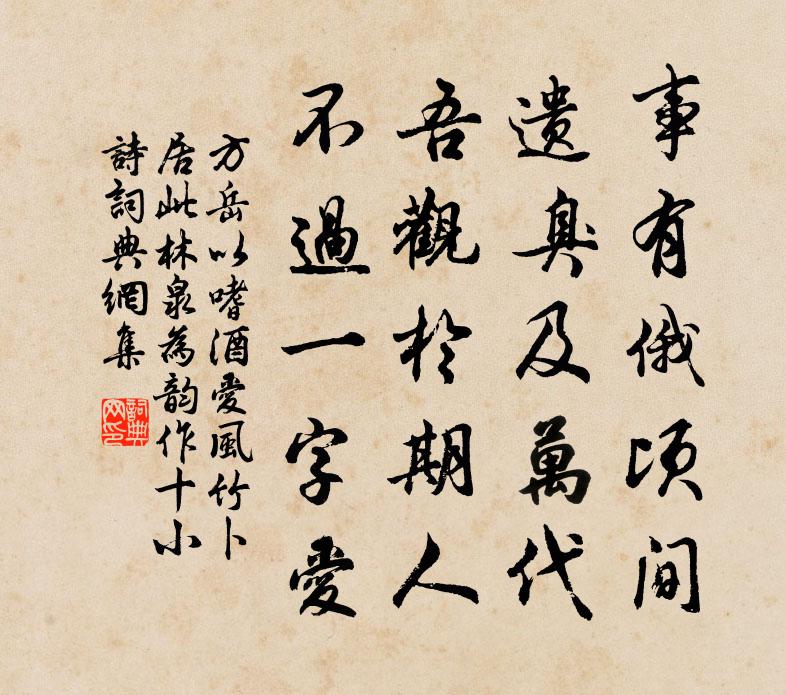 事有俄頃间
遗臭及萬代
吾觀於期人
不過一字愛
方岳以嗜酒愛風竹卜
居此林泉為韵作十小
詩詞典網集
詞典
网印